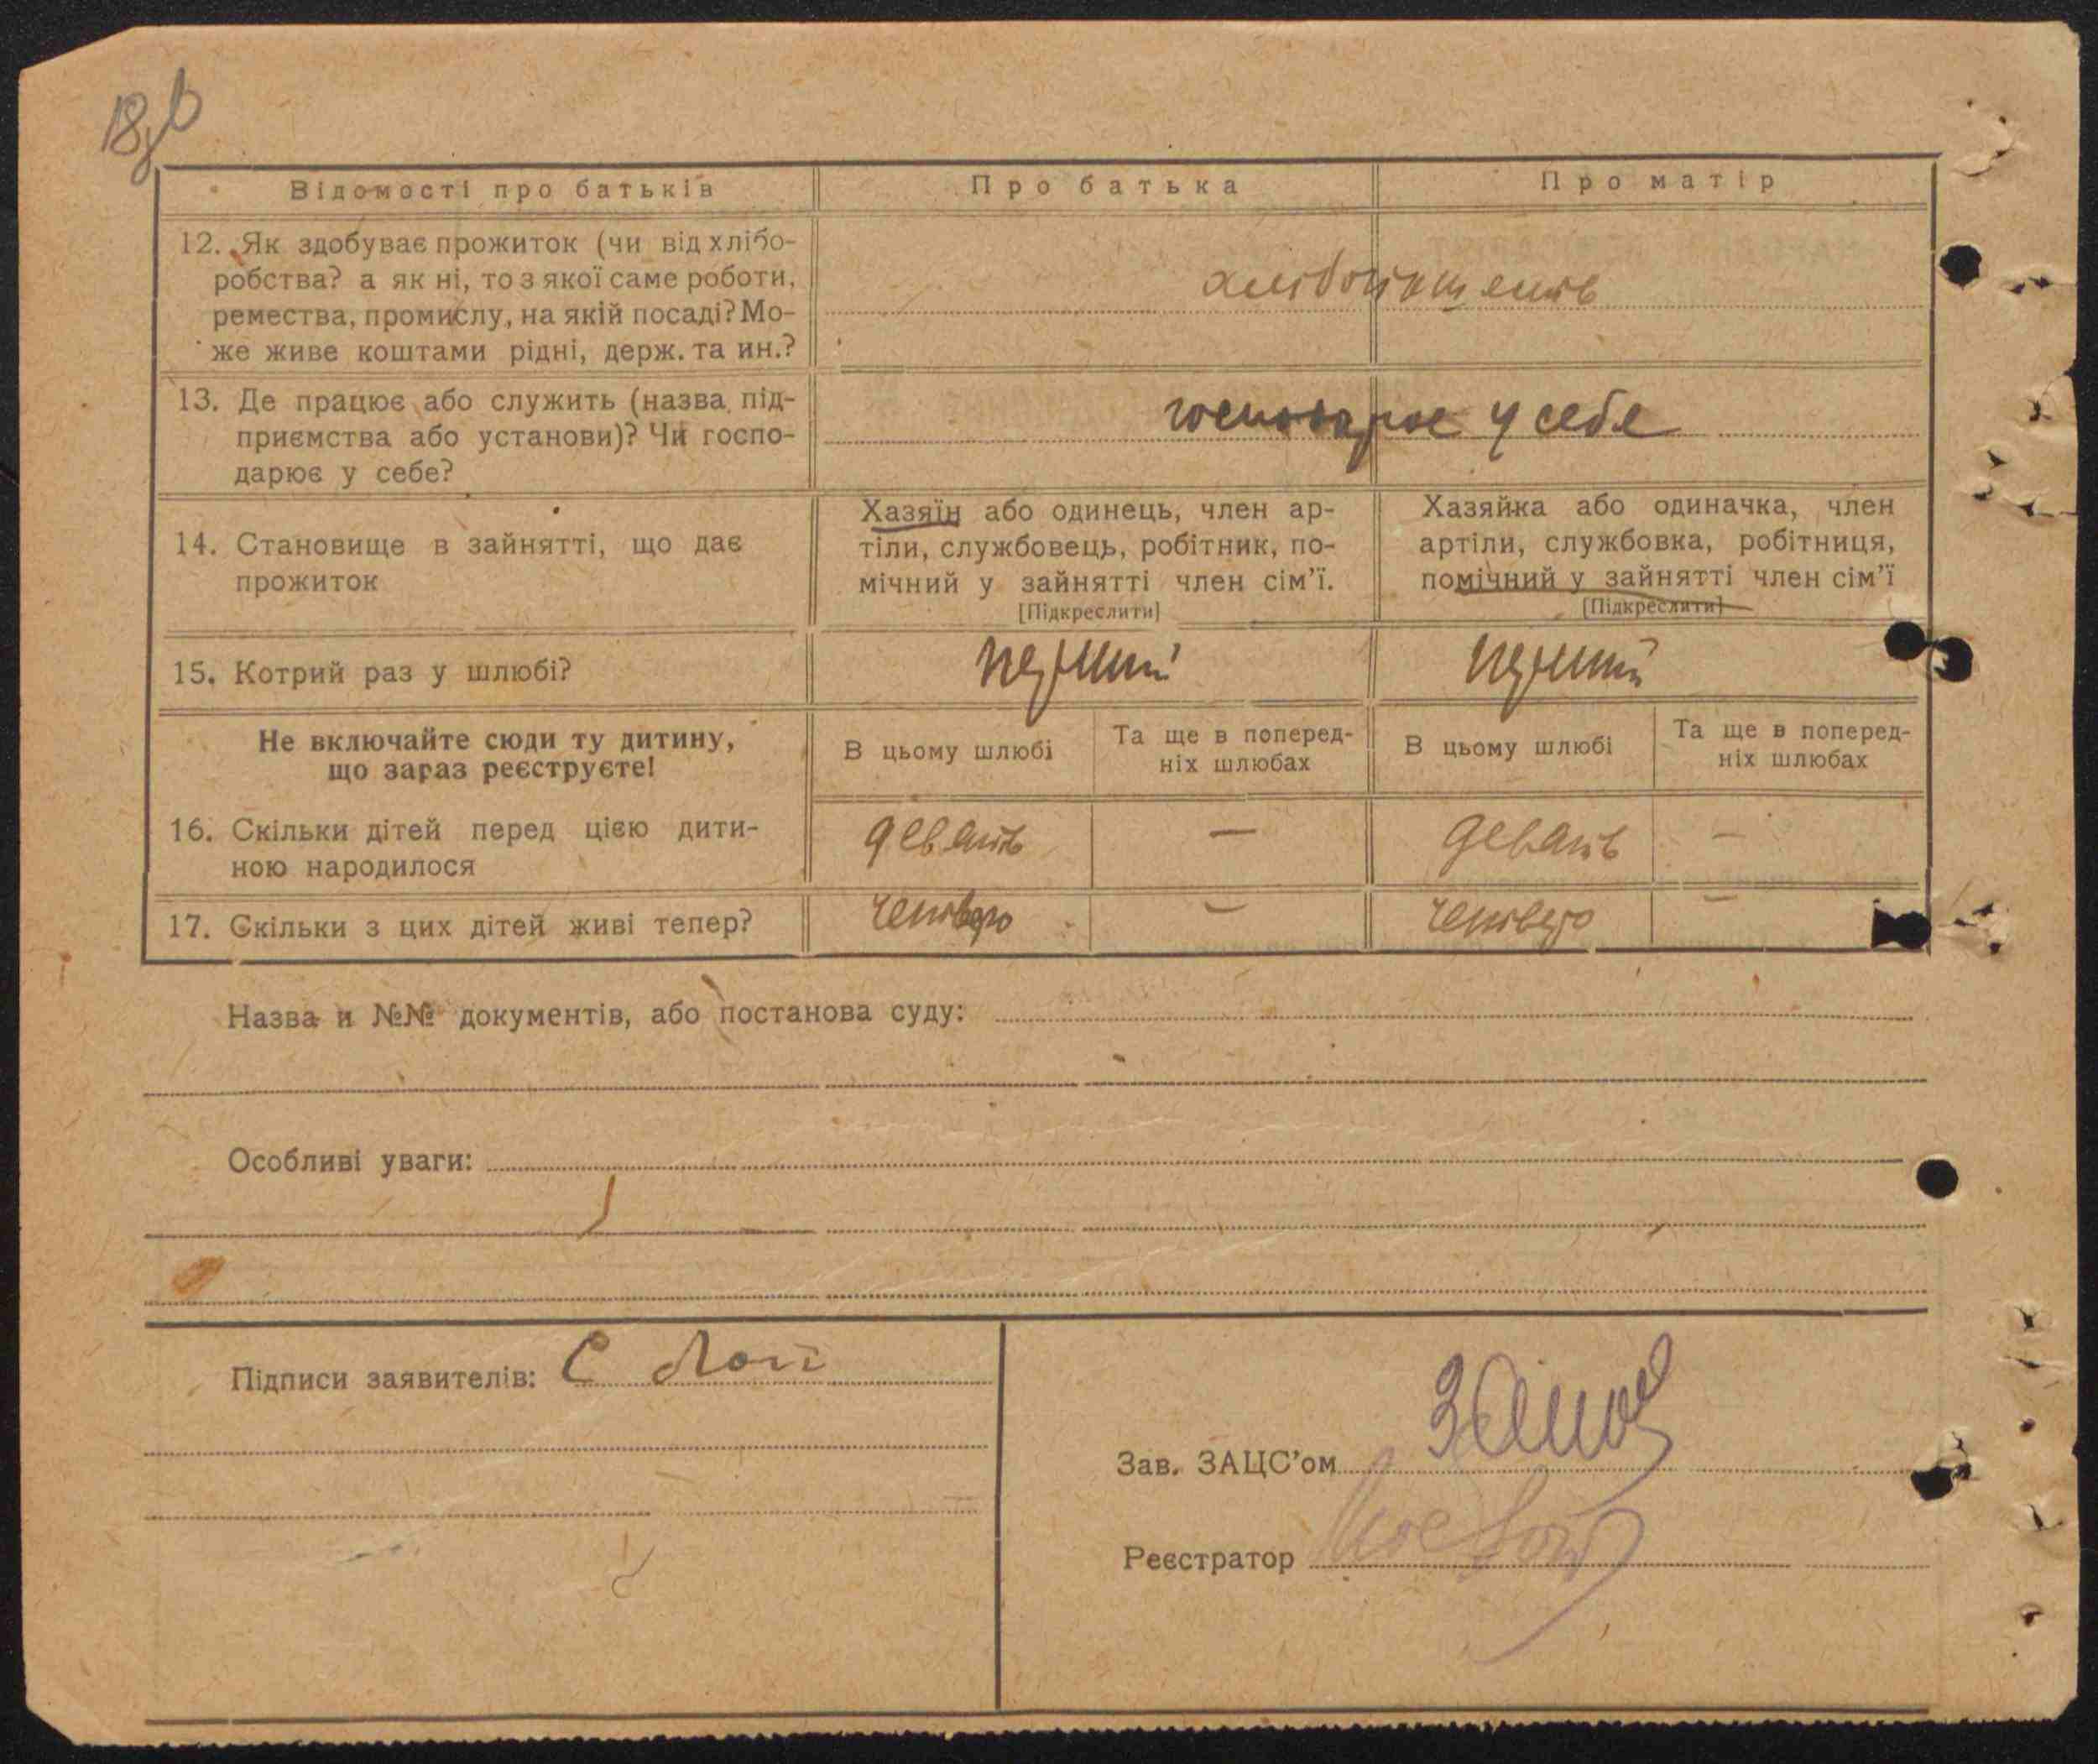 Відомості про батьків
Про батька
Про матір
12. Як здобуває прожиток (чи від хлібо-
робства? а як ні, то з якої саме роботи,
ремества, промислу, на якій посаді? Мо-
же живе коштами рідні, держ. та ин.?
13. Де працює або служить (назва під-
приємства або установи)? Чи госпо-
дарює у себе?
господарює у себе
14. Становище в зайнятті, що дає
прожиток
Хазяїн або одинець, член ар-
тіли, службовець, робітник, по-
мічний у зайнятті член сім'ї.
[Підкреслити]
Хазяйка або одиначка, член
артіли, службовка, робітниця,
помічний у зайнятті член сім'ї
[Підкреслити]
15. Котрий раз у шлюбі?
перший
перший
Не включайте сюди ту дитину,
що зараз реєструєте!
В цьому шлюбі
Та ще в поперед-
ніх шлюбах
В цьому шлюбі
Та ще в поперед-
ніх шлюбах
16. Скільки дітей перед цією дити-
ною народилося
девять
—
девять
—
17. Скільки з цих дітей живі тепер?
четверо
—
четверо
—
Назва и №№ документів, або постанова суду:
Особливі уваги:
Підписи заявителів: С
Зав. ЗАЦС'ом
Реєстратор